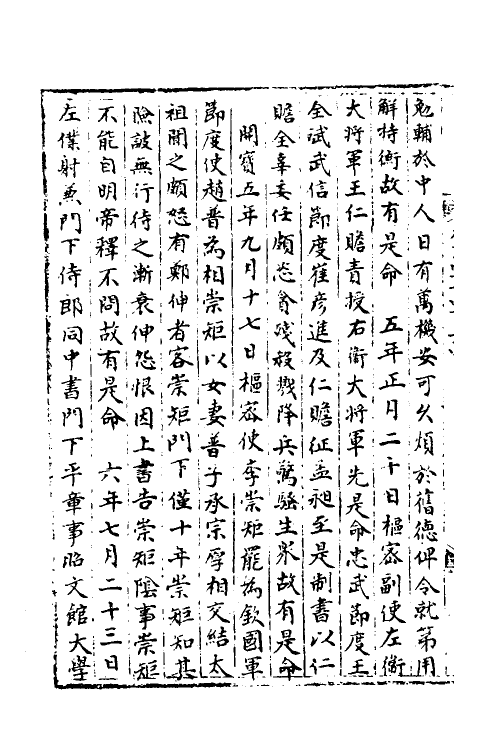 勉輔於中人日有萬機安可久煩於舊德俾令就第用
解持衡故有是命　五年正月二十日樞密副使左衛
大將軍王仁贍責授右衛大將軍先是命忠武節度王
全斌武信節度崔彥進及仁贍征孟昶至是制書以仁
贍全辜委任頗恣貪殘殺戮降兵驚騷生衆故有是命
開寶五年九月十七日樞密使李崇矩罷為鎮國軍
節度使趙普為相崇矩以女妻普子承宗厚相交結太
祖聞之頗怒有鄭伸者客崇矩門下僅十年崇矩知其
險詖無行待之漸衰伸怨恨因上書告崇矩陰事崇矩
不能自明帝釋不問故有是命　六年七月二十三日
左僕射兼門下侍郎同中書門下平章事昭文館大學